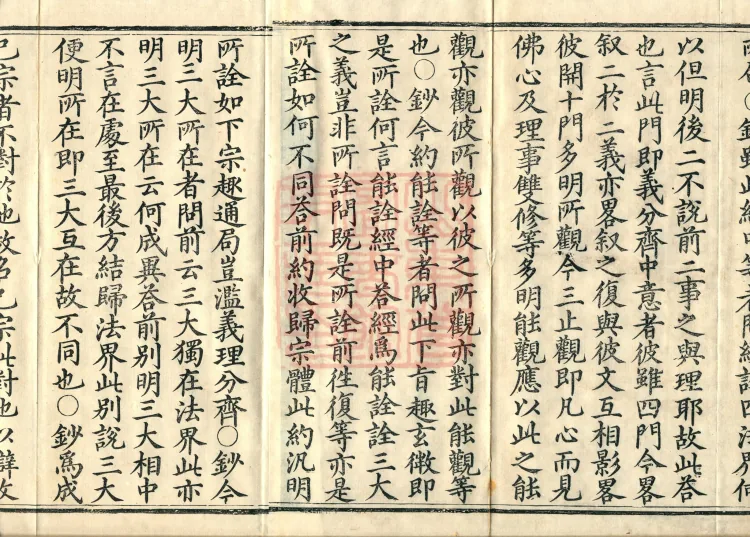 以但明後二不說前二事之與理耶故此答
也言此門即義分齊中意者彼雖四門今畧
叙二於二義亦畧叙之復與彼文互相影畧
彼開十門多明所觀今三止觀即凡心而見
佛心及理事雙修等多明能觀應以此之能
觀亦觀彼所觀以彼之所觀亦對此能觀等
也〇鈔今約能詮等者問此下旨趣玄微即
是所詮何言能詮經中答經爲能詮詮三大
之義豈非所詮問既是所詮前徃復等亦是
所詮如何不同答前約收歸宗體此約汎明
所詮如下宗趣通局豈濫義理分齊〇鈔今
明三大所在者問前云三大獨在法界此亦
明三大所在云何成異答前別明三大相中
不言在處至最後方結歸法界此別說三大
便明所在即三大互在故不同也〇鈔爲成
己宗者不對於他故名己宗此對他以辯故